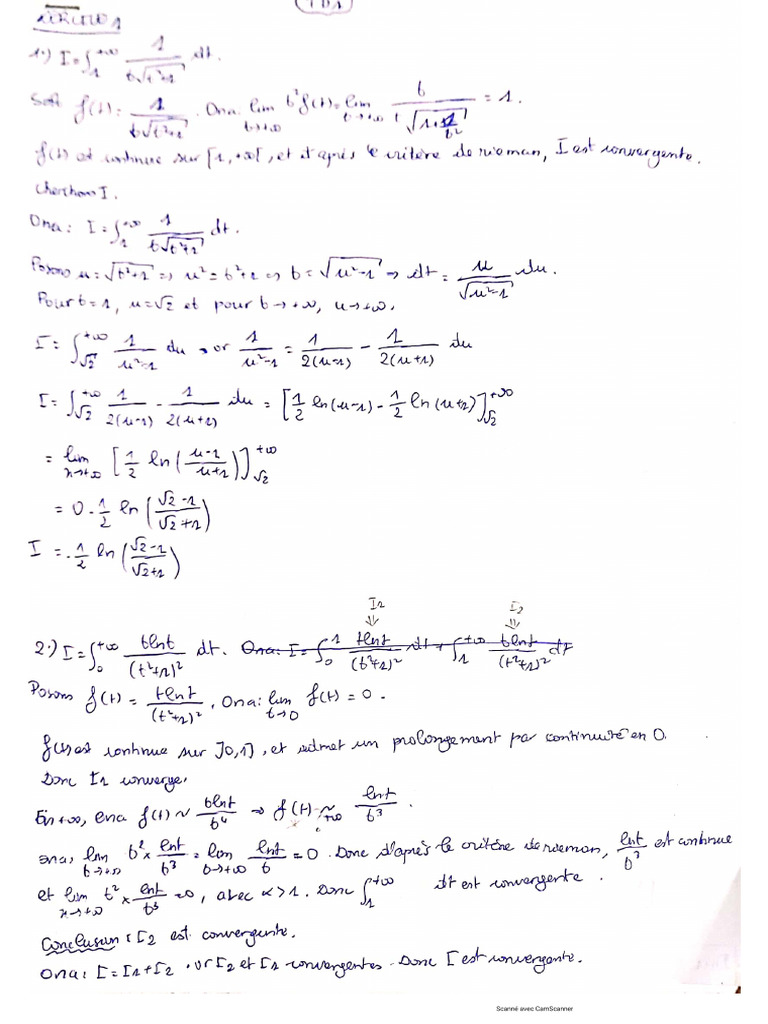 TD1
EXERCICE 1
1.) I = ∫_1^{+∞} 1/(t√(t²+1)) dt.
Soit f(t) = 1/(t√(t²+1)). Ona: lim_{t→+∞} t²f(t) = lim_{t→+∞} t/(t√(1+1/t²)) = 1.
f(t) est continue sur [1,+∞[, et d'après le critère de rieman, I est convergente.
Cherchons I.
Ona: I = ∫_1^{+∞} 1/(t√(t²+1)) dt.
Posons u = √(t²+1) ⇒ u² = t²+1 ⇒ t = √(u²-1) → dt = u/√(u²-1) du.
Pour t = 1, u = √2 et pour t → +∞, u → +∞.
I = ∫_{√2}^{+∞} 1/(u²-1) du → or 1/(u²-1) = 1/(2(u-1)) - 1/(2(u+1)) du
I = ∫_{√2}^{+∞} 1/(2(u-1)) - 1/(2(u+1)) du = [1/2 ln(u-1) - 1/2 ln(u+1)]_{√2}^{+∞}
= lim_{x→+∞} [1/2 ln((u-1)/(u+1))]_{√2}^{+∞}
= 0 - 1/2 ln((√2-1)/(√2+1))
I = - 1/2 ln((√2-1)/(√2+1))
I1 I2
⇓ ⇓
2.) I = ∫_0^{+∞} tlnt/(t²+1)² dt. Ona: I = ∫_0^1 tlnt/(t²+1)² dt + ∫_1^{+∞} tlnt/(t²+1)² dt
Posons f(t) = tlnt/(t²+1)², Ona: lim_{t→0} f(t) = 0.
f(t) est continue sur ]0,1], et admet un prolongement par continuité en 0.
Donc I1 converge.
En +∞, ona f(t) ~ tlnt/t⁴ ⇒ f(t) ~_{+∞} lnt/t³.
ona, lim_{t→+∞} t² × lnt/t³ = lim_{t→+∞} lnt/t = 0. Donc d'après le critère de rieman, lnt/t³ est continue
et lim_{x→+∞} t² × lnt/t³ = 0, avec α>1. Donc ∫_1^{+∞} dt est convergente.
Conclusion : I2 est convergente.
Ona: I = I1 + I2. or I2 et I1 convergentes. Donc I est convergente.
Scanné avec CamScanner